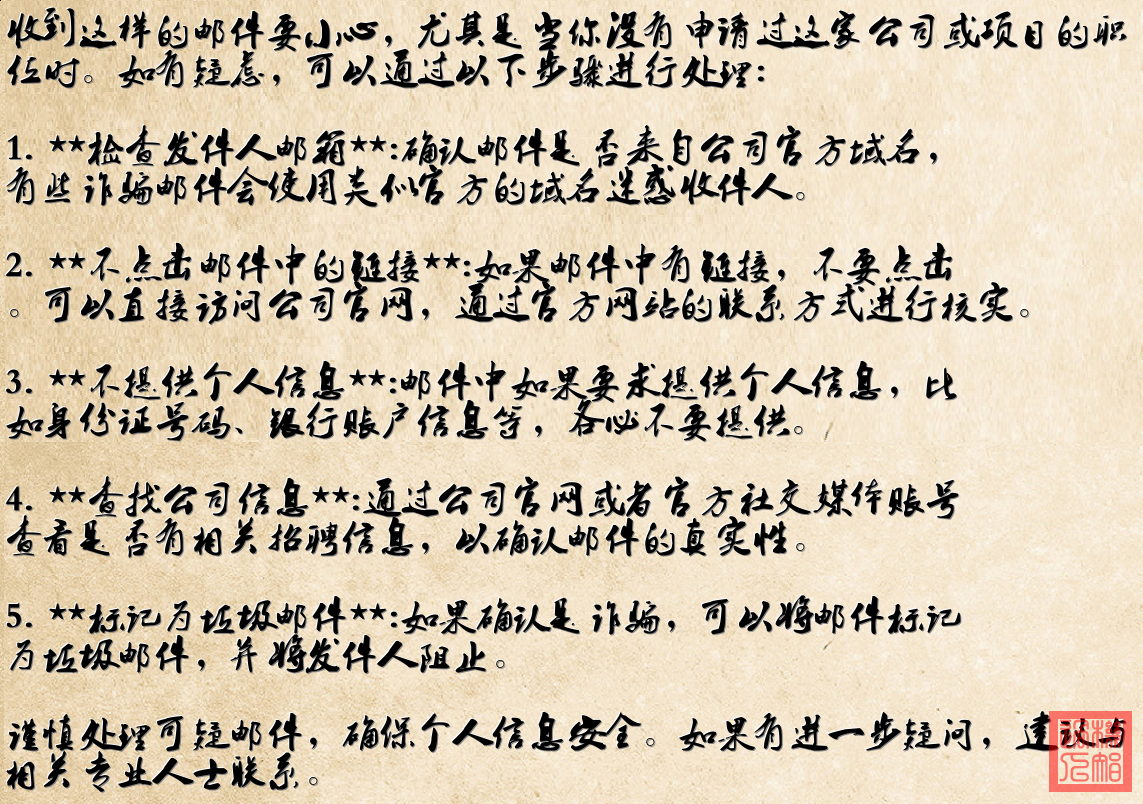 收到这样的邮件要小心，尤其是当你没有申请过这家公司或项目的职
位时。如有疑虑，可以通过以下步骤进行处理：
1. **检查发件人邮箱**:确认邮件是否来自公司官方域名，
有些诈骗邮件会使用类似官方的域名迷惑收件人。
2. **不点击邮件中的链接**:如果邮件中有链接，不要点击
。可以直接访问公司官网，通过官方网站的联系方式进行核实。
3. **不提供个人信息**:邮件中如果要求提供个人信息，比
如身份证号码、银行账户信息等，务必不要提供。
4. **查找公司信息**:通过公司官网或者官方社交媒体账号
查看是否有相关招聘信息，以确认邮件的真实性。
5. **标记为垃圾邮件**:如果确认是诈骗，可以将邮件标记
为垃圾邮件，并将发件人阻止。
谨慎处理可疑邮件，确保个人信息安全。如果有进一步疑问，建议与
相关专业人士联系。